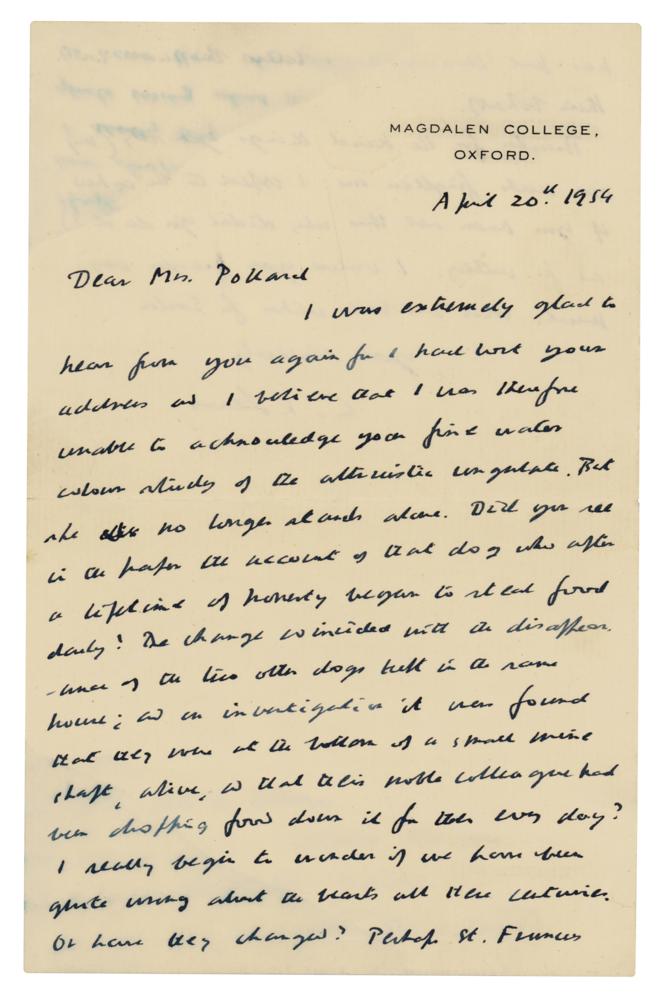 MAGDALEN COLLEGE,
OXFORD.
April 20th 1954
Dear Mrs. Pollard
I was extremely glad to
hear from you again for I had lost your
address and I believe that I was therefore
unable to acknowledge your fine water
colour studies of the altruistic ungulate. But
she no longer stands alone. Did you see
in the paper the account of that dog who after
a lifetime of honesty began to steal food
daily? The change coincided with the disappear
-ance of the two other dogs kept in the same
house; and on investigation it was found
that they were at the bottom of a small mine
shaft, alive, and that their noble colleague had
been dropping food down it for them every day?
I really begin to wonder if we have been
quite wrong about the beasts all these centuries.
Or have they changed? Perhaps St. Francis